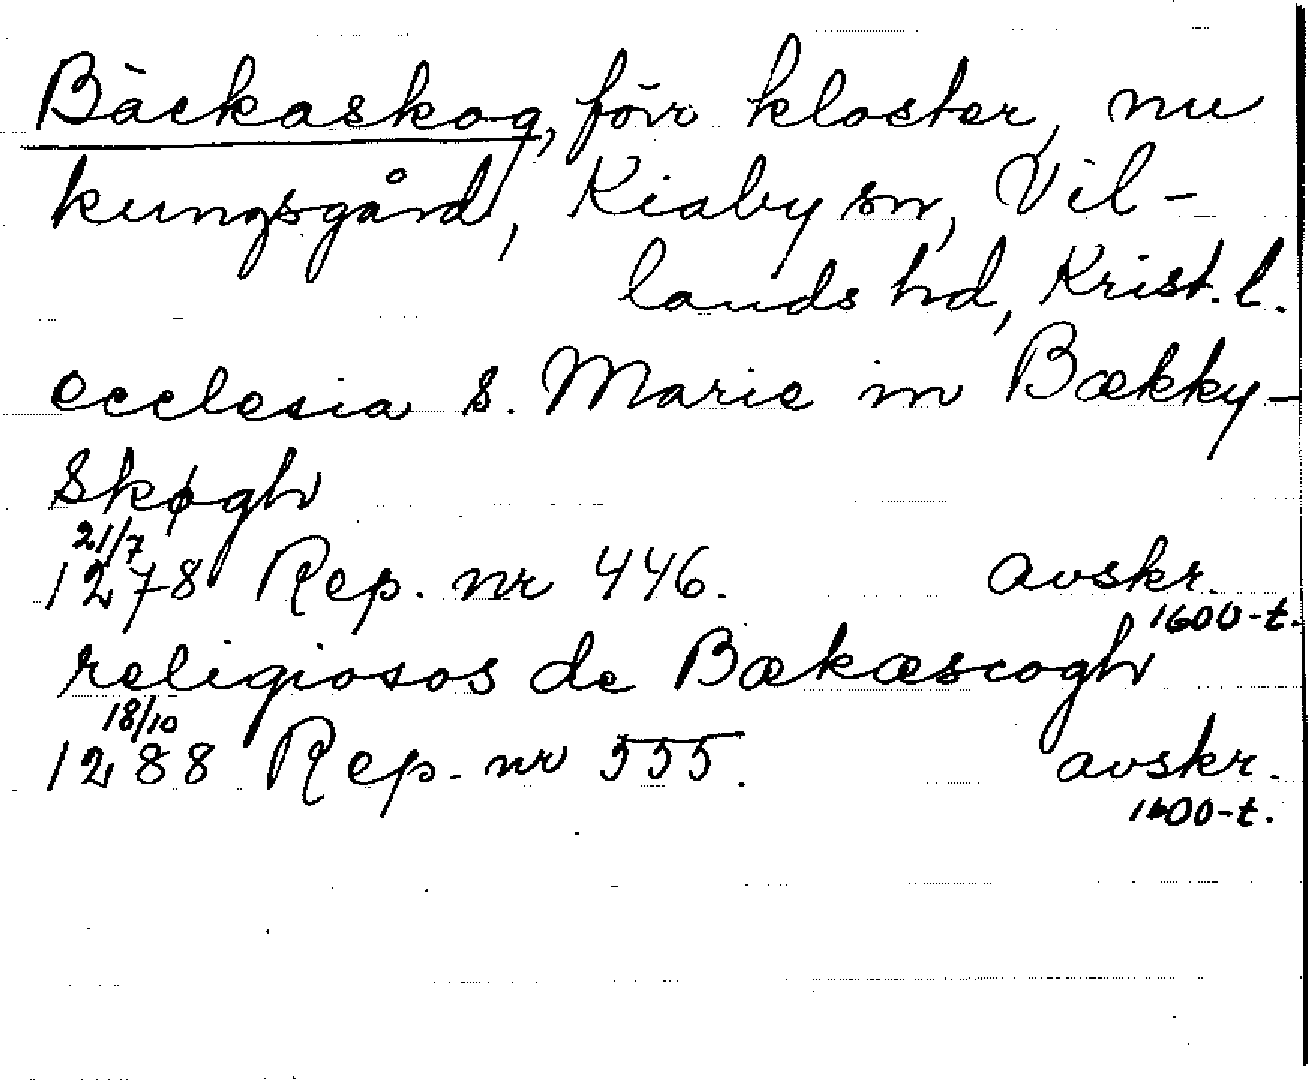 Bäckaskog, förr kloster, nu
kungsgård, Kiaby sn, Vil-
lands hd, Krist. l.
ecclesia s. Marie in Bækky-
skøgh
21/7
1278 Rep. nr 446. avskr.
1600-t.
religiosos de Bækæscogh
18/10
1288 Rep. nr 555. avskr.
1600-t.